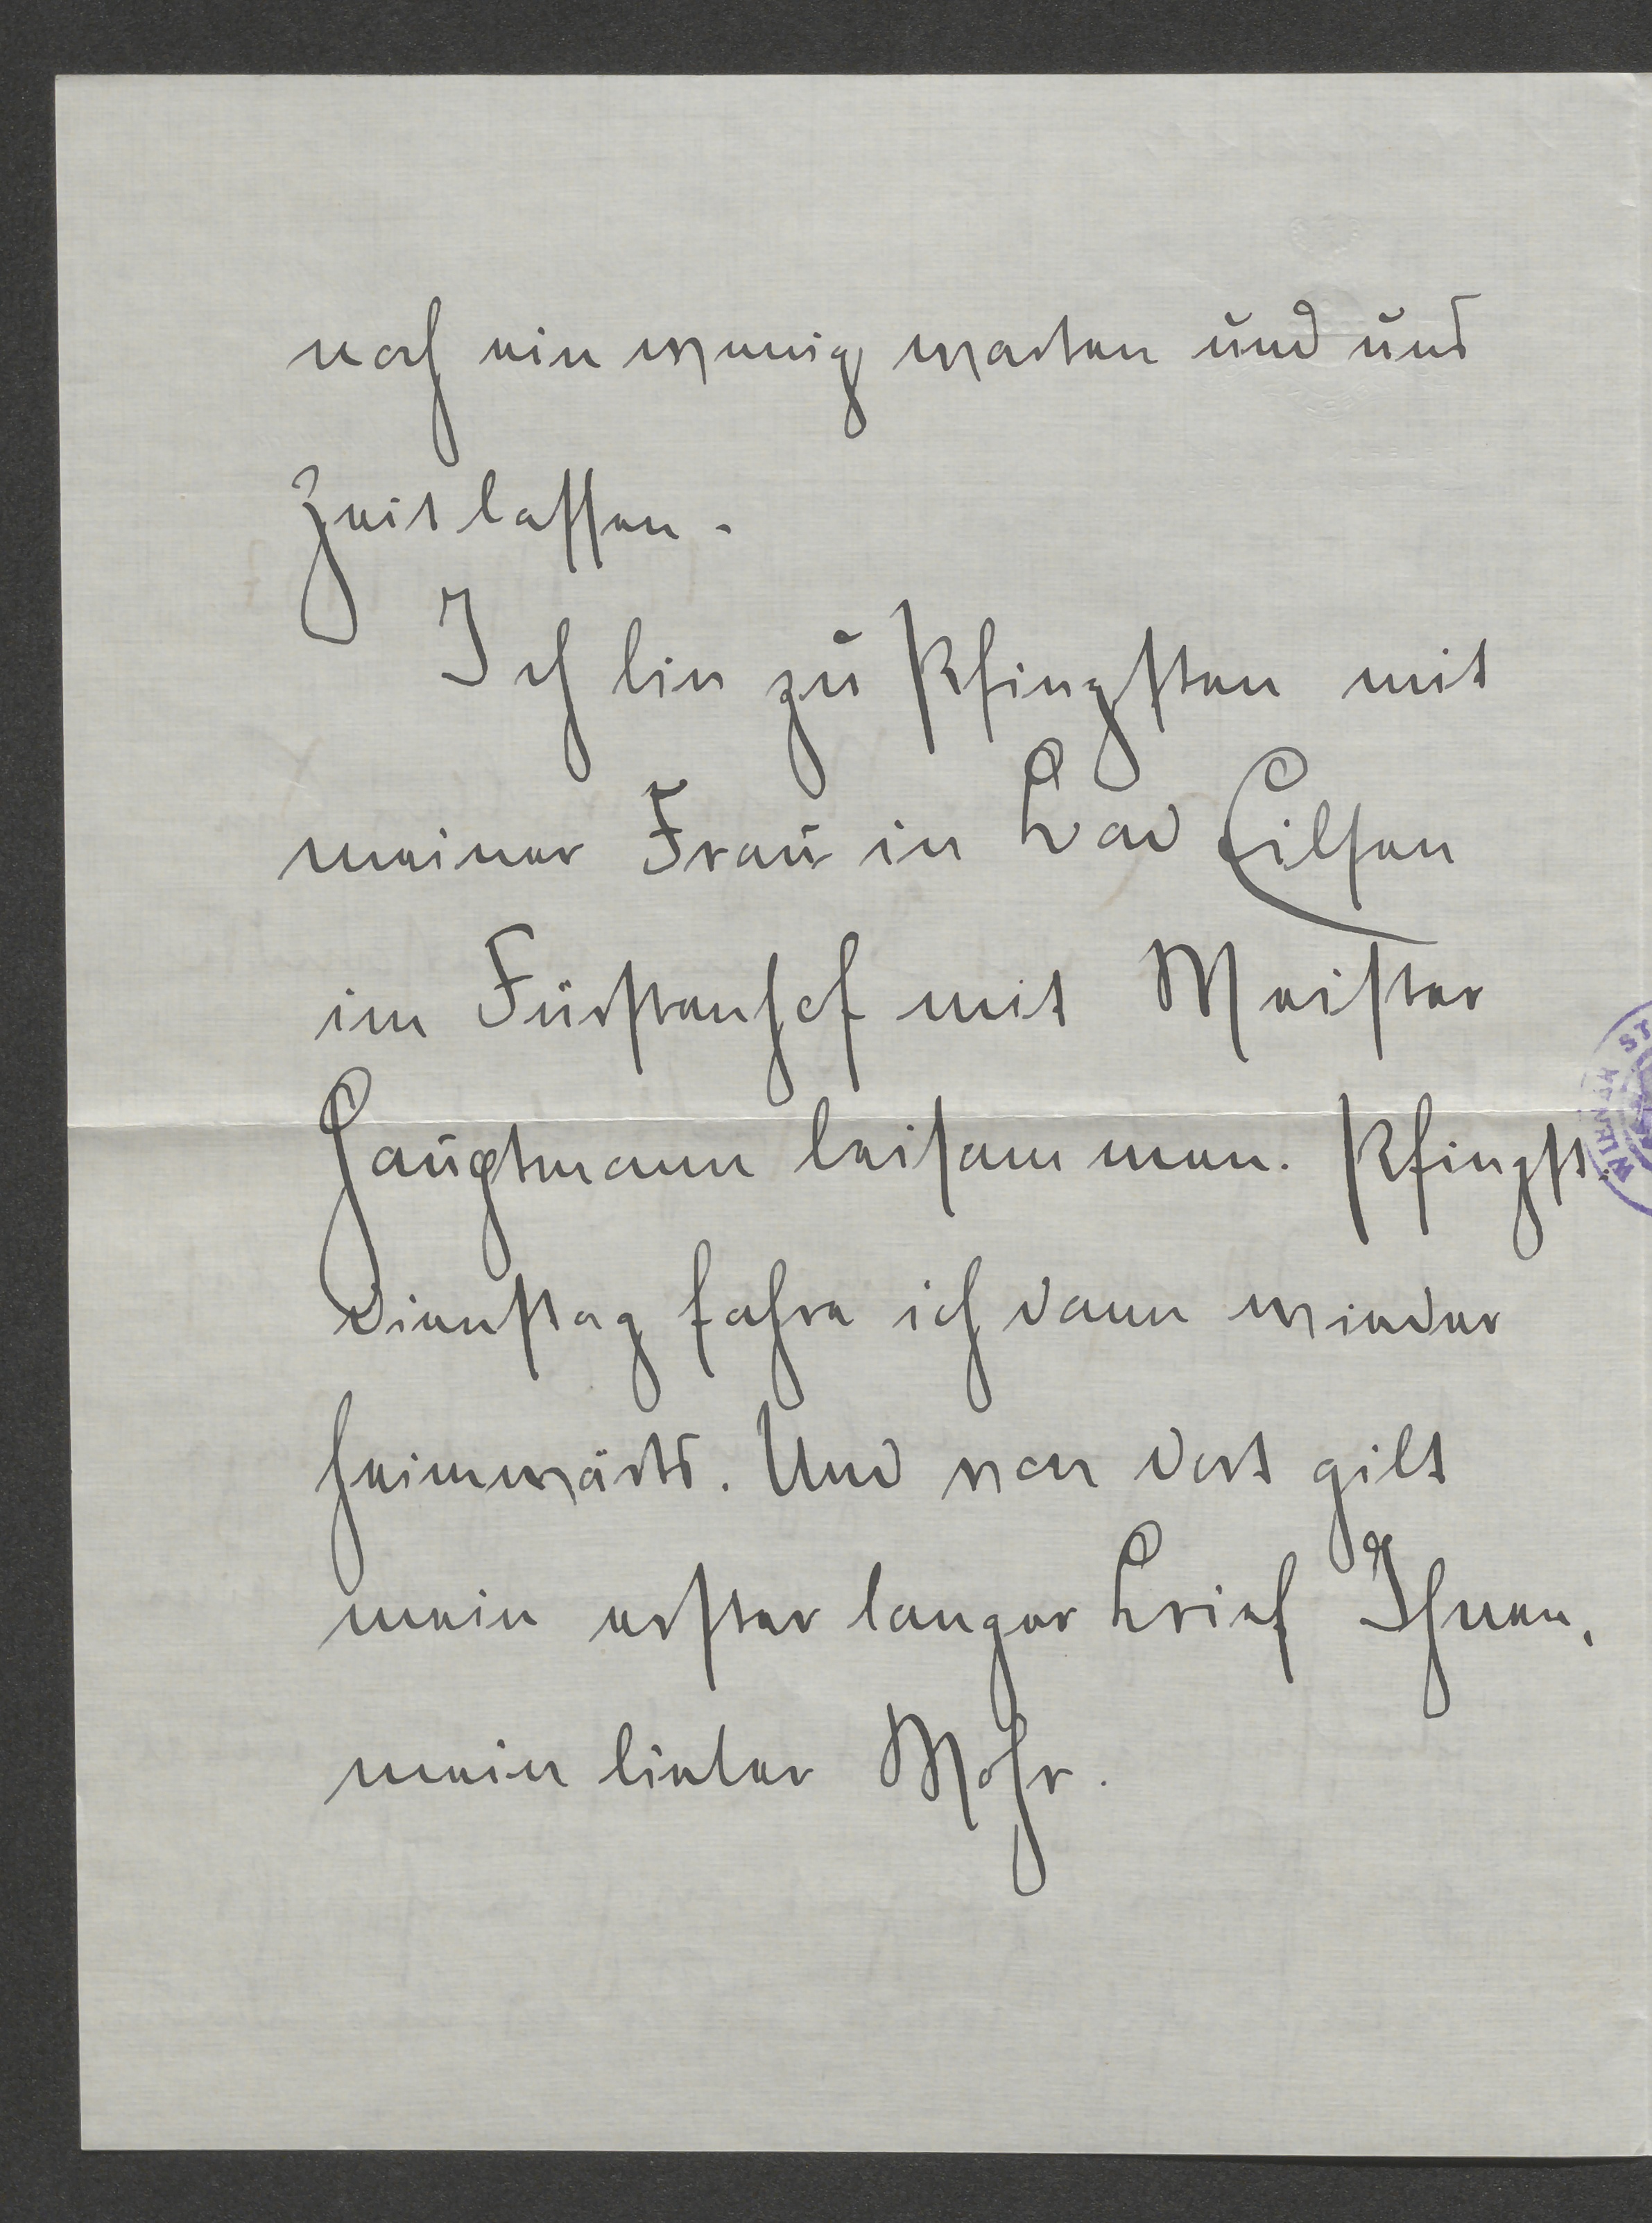 noch ein wenig warten und uns
Zeit lassen.
Ich bin zu Pfingsten mit
meiner Frau in Bad Eilsen
im Fürstenhof mit Meister
Hauptmann beisammen. Pfingst-
dienstag fahre ich dann wieder
heimwärts. Und von dort gilt
mein erster langer Brief Ihnen,
mein lieber Mohr.